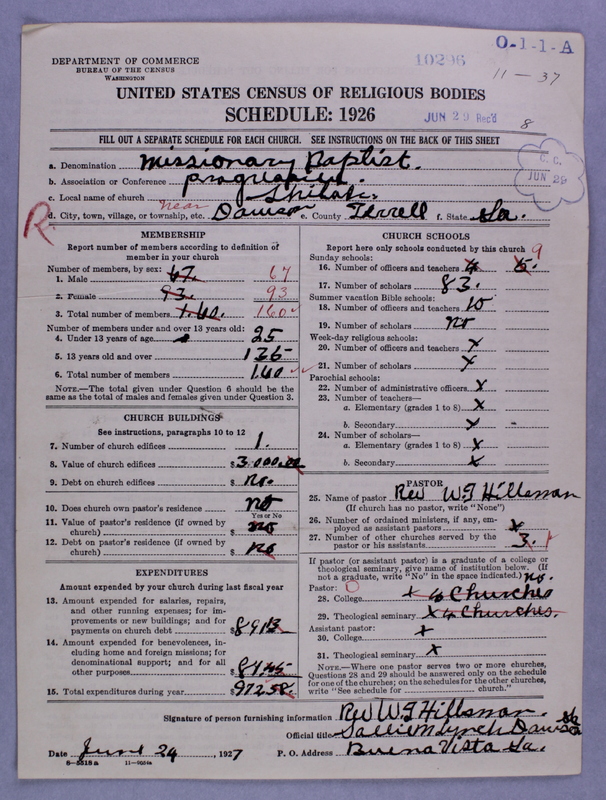 O-1-1-A
DEPARTMENT OF COMMERCE
BUREAU OF THE CENSUS
WASHINGTON
10296
11-37
UNITED STATES CENSUS OF RELIGIOUS BODIES
SCHEDULE: 1926
JUN 29 Rec'd
8
FILL OUT A SEPARATE SCHEDULE FOR EACH CHURCH. SEE INSTRUCTIONS ON THE BACK OF THIS SHEET
C. C.
JUN 29
a. Denomination Missionary Baptist.
b. Association or Conference
c. Local name of church Shilah.
R
near
d. City, town, village, or township, etc. Dawson e. County Terrell f. State Ga.
MEMBERSHIP
Report number of members according to definition of
member in your church
Number of members, by sex:
1. Male 67. 67
2. Female 93. 93
3. Total number of members 160. 160
Number of members under and over 13 years old:
4. Under 13 years of age 25
5. 13 years old and over 135
6. Total number of members 160
NOTE.—The total given under Question 6 should be
the same as the total of males and females given under Question 3.
CHURCH BUILDINGS
See instructions, paragraphs 10 to 12
7. Number of church edifices 1.
8. Value of church edifices $3.000.00
9. Debt on church edifices $no.
10. Does church own pastor's residence no
Yes or No
11. Value of pastor's residence (if owned by
church) $no
12. Debt on pastor's residence (if owned by
church) $no
EXPENDITURES
Amount expended by your church during last fiscal year
13. Amount expended for salaries, repairs,
and other running expenses; for im-
provements or new buildings; and for
payments on church debt $8913
14. Amount expended for benevolences, in-
cluding home and foreign missions; for
denominational support; and for all
other purposes $8145
15. Total expenditures during year $97258.
CHURCH SCHOOLS
Report here only schools conducted by this church
9
Sunday schools:
16. Number of officers and teachers 4 5.
17. Number of scholars 83.
Summer vacation Bible schools:
18. Number of officers and teachers no
19. Number of scholars no
Week-day religious schools:
20. Number of officers and teachers x
21. Number of scholars x
Parochial schools:
22. Number of administrative officers x
23. Number of teachers—
a. Elementary (grades 1 to 8) x
b. Secondary x
24. Number of scholars—
a. Elementary (grades 1 to 8) x
b. Secondary x
PASTOR
25. Name of pastor Rev W.G Hillsman
(If church has no pastor, write "None")
26. Number of ordained ministers, if any, em-
ployed as assistant pastors x
27. Number of other churches served by the
pastor or his assistants 3.
If pastor (or assistant pastor) is a graduate of a college or
theological seminary, give name of institution below. (If
not a graduate, write "No" in the space indicated.) no.
Pastor: 0
28. College x 4 Churches
29. Theological seminary x 4 Churches.
Assistant pastor:
30. College x
31. Theological seminary x
NOTE.—Where one pastor serves two or more churches,
Questions 28 and 29 should be answered only on the schedule
for one of the churches; on the schedules for the other churches,
write "See schedule for church."
Signature of person furnishing information Rev W.G Hillsman.
Official title Sallie M Lynch Dawson Ga
Date June 24, 1927 P. O. Address Buena Vista Ga.
8—5518a 11—9054a